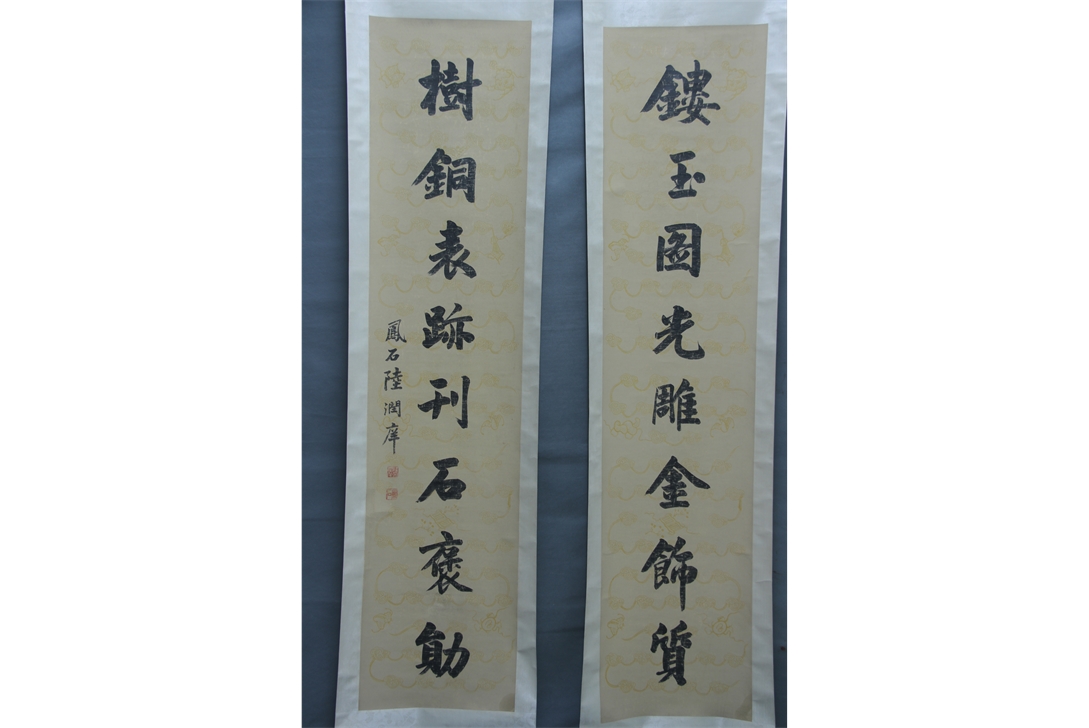 鏤玉圖光雕金飾質
樹銅表跡刊石褒勛
鳳石陸潤庠